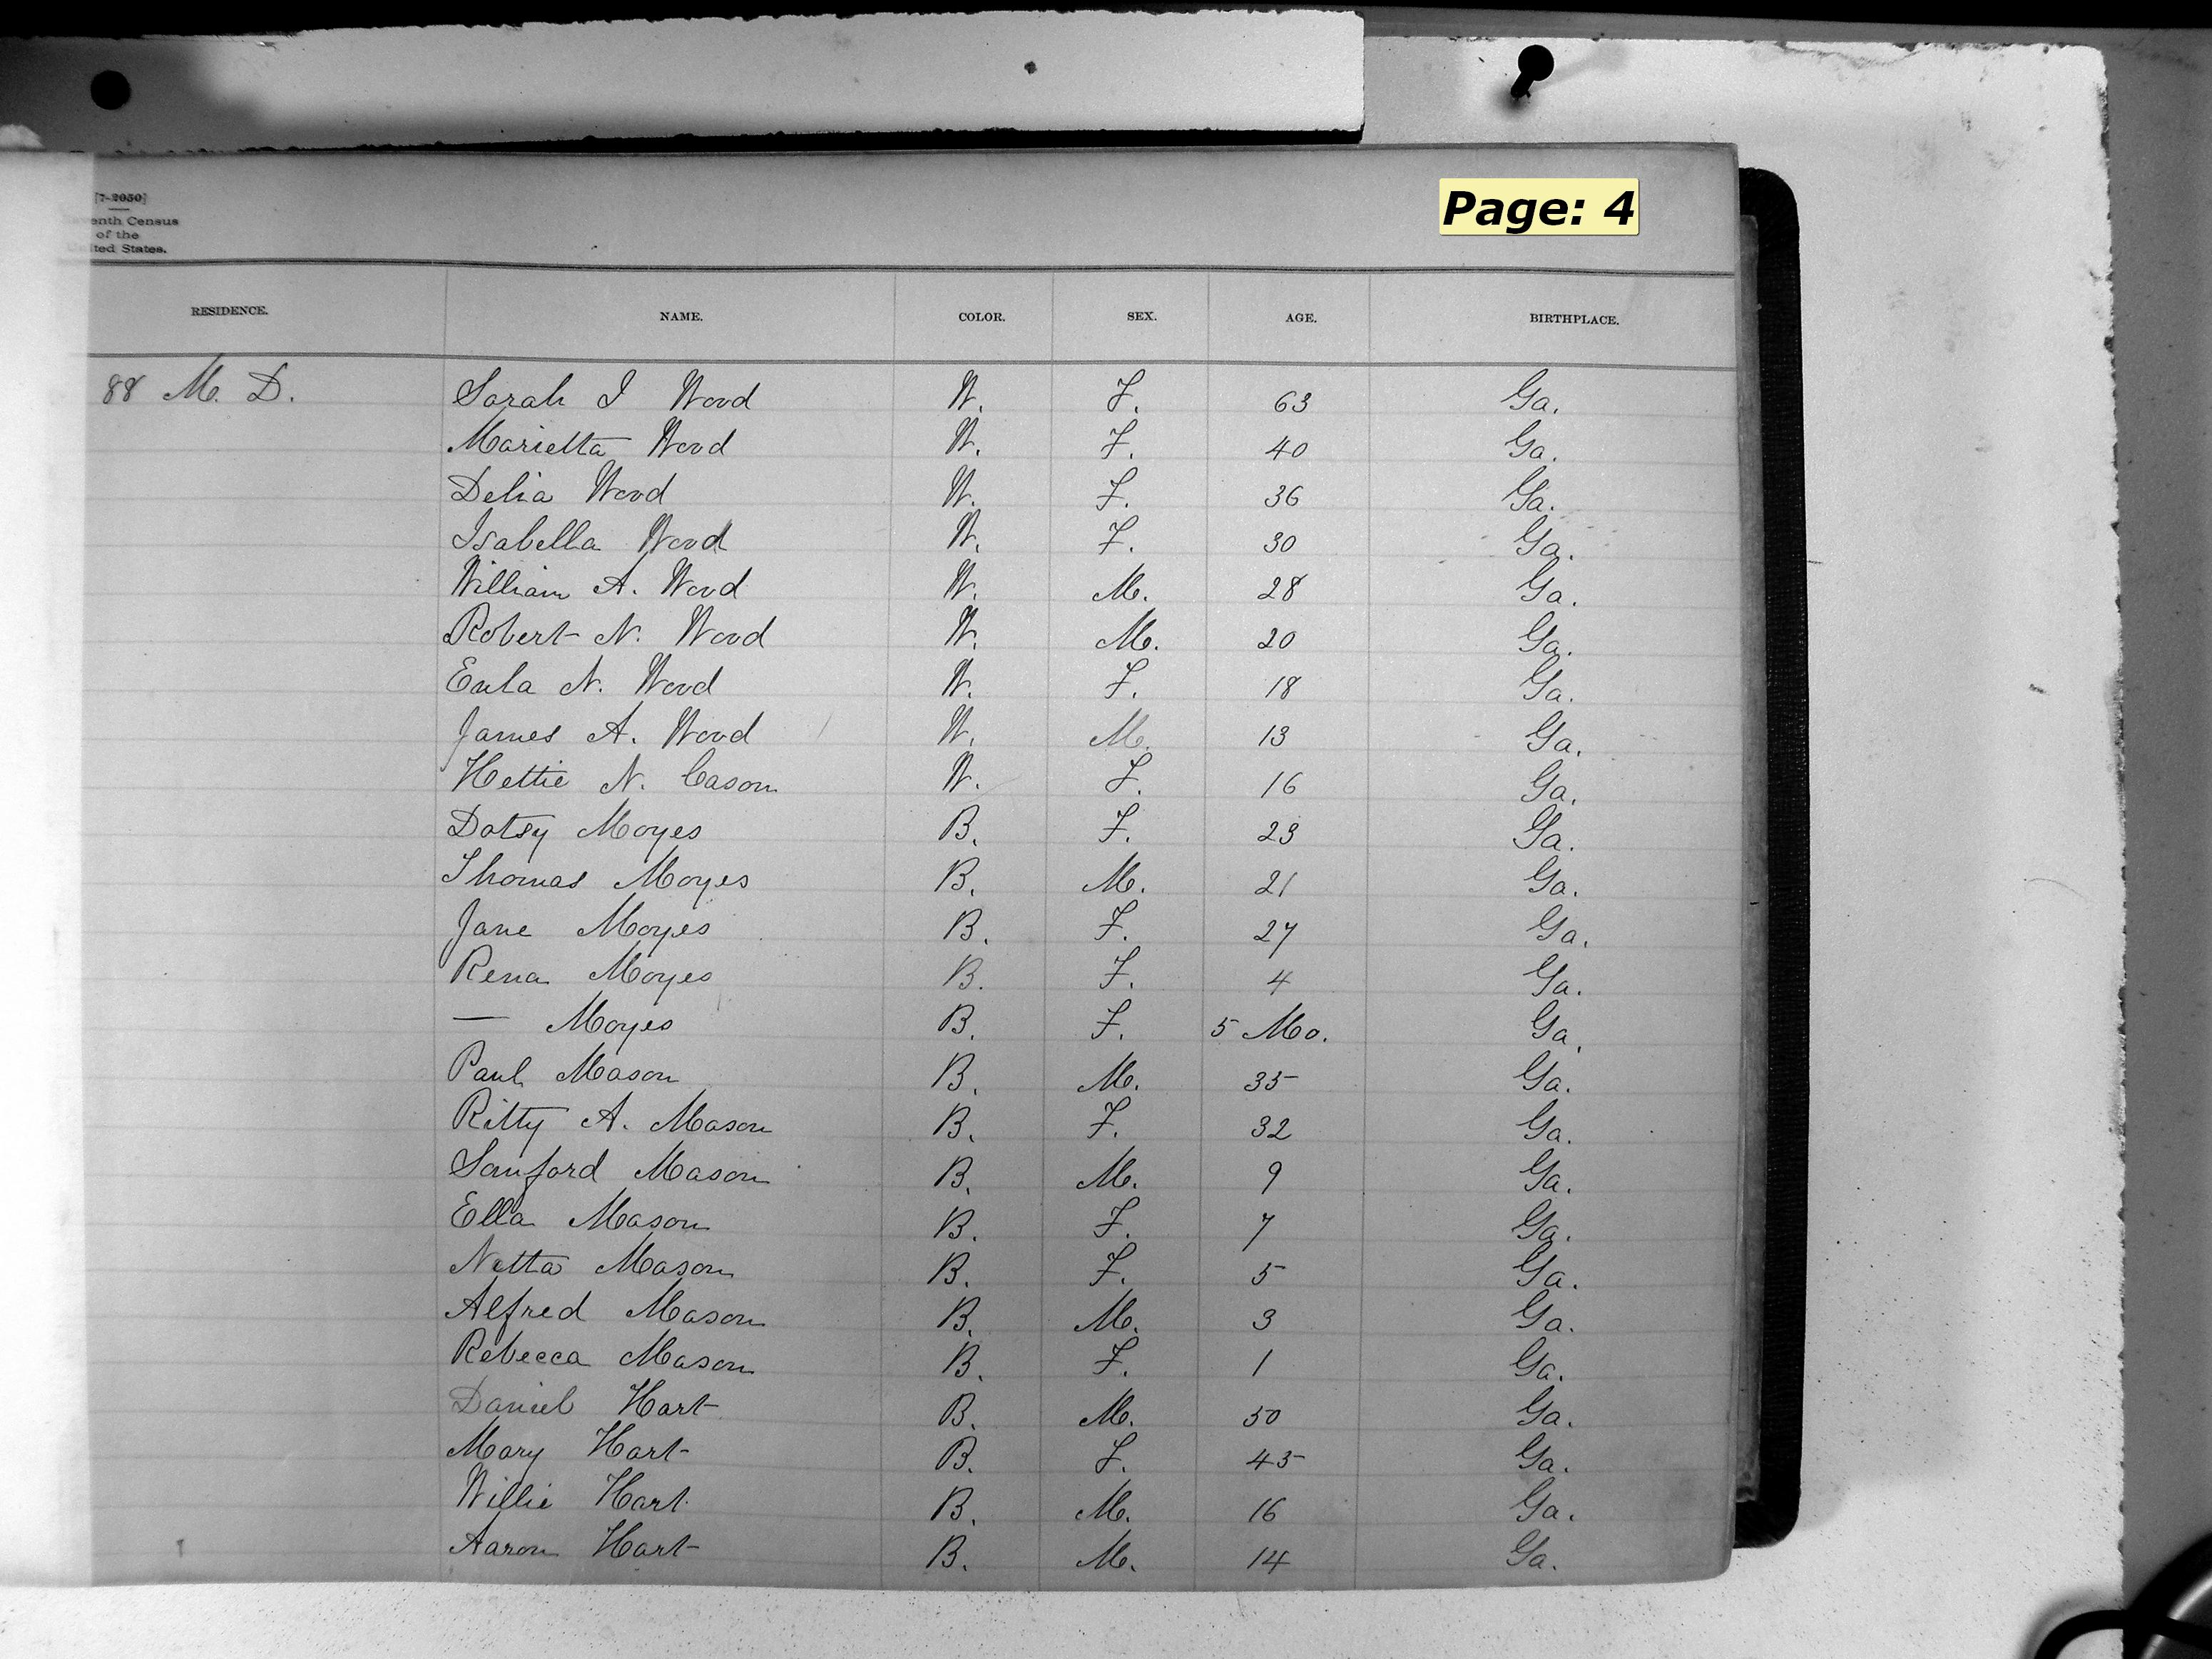 [7-2050]
enth Census
of the
ited States.
Page: 4
RESIDENCE. NAME. COLOR. SEX. AGE. BIRTHPLACE.
88 M. D. Sarah I Wood W. F. 63 Ga.
Marietta Wood W. F. 40 Ga.
Delia Wood W. F. 36 Ga.
Isabella Wood W. F. 30 Ga.
William A. Wood W. M. 28 Ga.
Robert N. Wood W. M. 20 Ga.
Eula N. Wood W. F. 18 Ga.
James A. Wood W. M. 13 Ga.
Hettie N. Cason W. F. 16 Ga.
Dotsy Moyes B. F. 23 Ga.
Thomas Moyes B. M. 21 Ga.
Jane Moyes B. F. 27 Ga.
Rena Moyes B. F. 4 Ga.
— Moyes B. F. 5 Mo. Ga.
Paul Mason B. M. 35 Ga.
Ritty A. Mason B. F. 32 Ga.
Sanford Mason B. M. 9 Ga.
Ella Mason B. F. 7 Ga.
Netta Mason B. F. 5 Ga.
Alfred Mason B. M. 3 Ga.
Rebecca Mason B. F. 1 Ga.
Daniel Hart B. M. 50 Ga.
Mary Hart B. F. 45 Ga.
Willie Hart B. M. 16 Ga.
Aaron Hart B. M. 14 Ga.